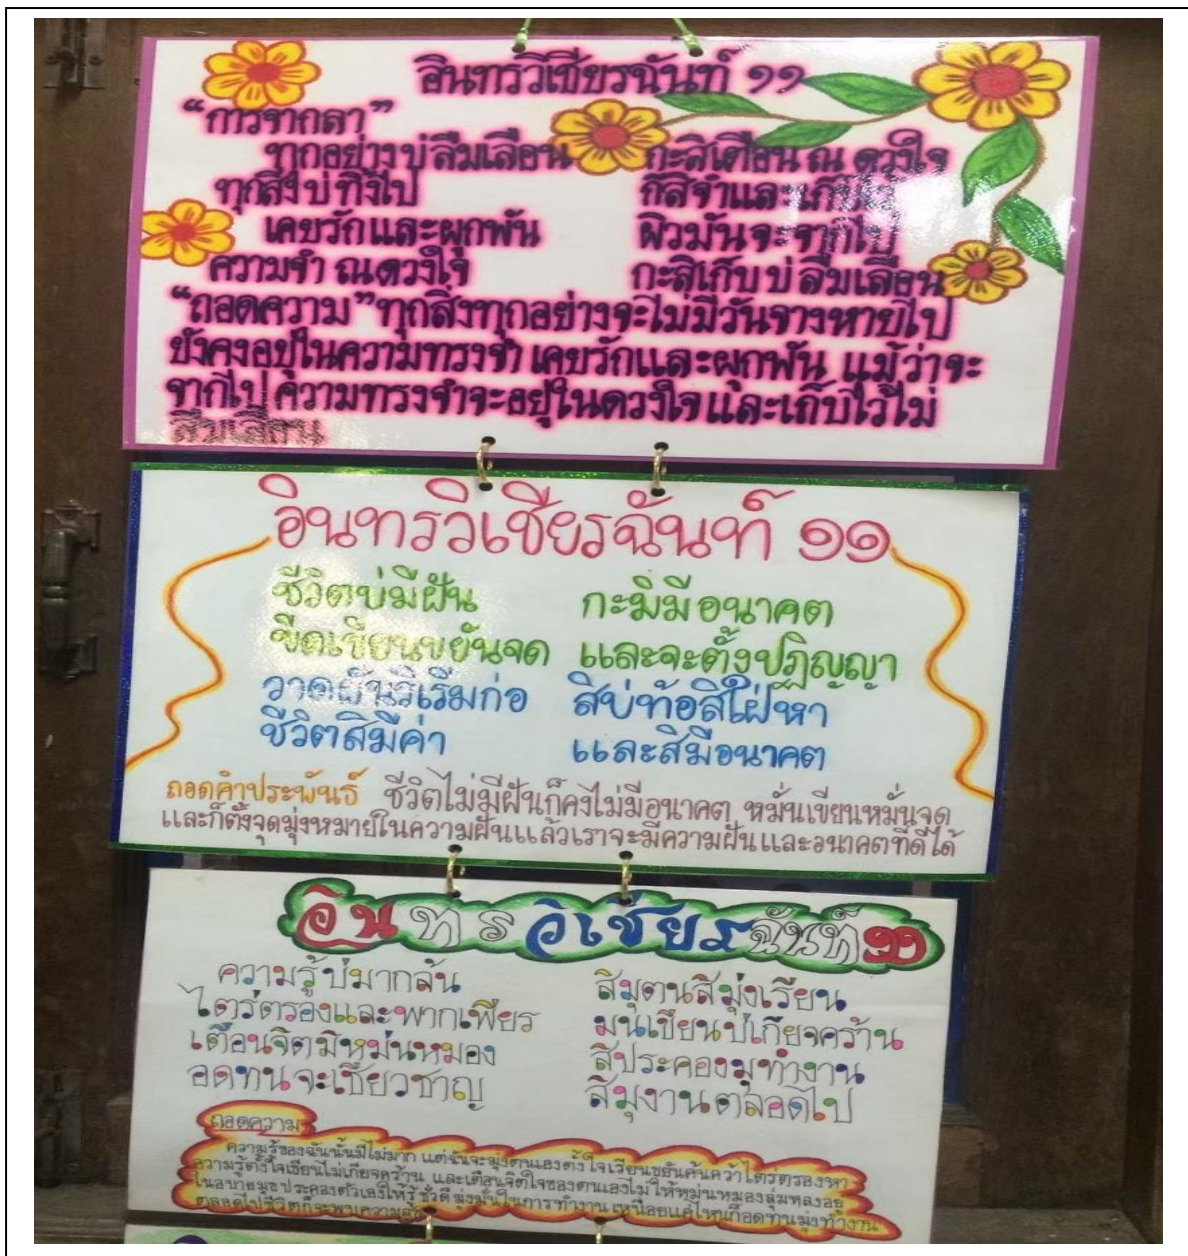 อินทรวิเชียรฉันท์ ๑๑
“การจากลา”
ทุกอย่างบ่ลืมเลือน กะสิเตือน ณ ดวงใจ
ทุกสิ่งบ่ทิ้งไป กะสิจำและเก็บไว้
เคยรักและผูกพัน ผิวมันจะจากไป
ความจำ ณ ดวงใจ กะสิเก็บบ่ลืมเลือน
“ถอดความ” ทุกสิ่งทุกอย่างจะไม่มีวันจางหายไป
ยังคงอยู่ในความทรงจำ เคยรักและผูกพัน แม้ว่าจะ
จากไป ความทรงจำจะอยู่ในดวงใจและเก็บไว้ไม่
ลืมเลือน
อินทรวิเชียรฉันท์ ๑๑
ชีวิตบ่มีฝัน กะมิมีอนาคต
ขีดเขียนขยันจด และจะตั้งปฏิญญา
วาดฝันริเริ่มก่อ สิบ่ท้อสิใฝ่หา
ชีวิตสิมีค่า และสิมีอนาคต
ถอดคำประพันธ์ ชีวิตไม่มีฝันก็คงไม่มีอนาคต หมั่นเขียนหมั่นจด
และก็ตั้งจุดมุ่งหมายในความฝันแล้วเราจะมีความฝันและอนาคตที่ดีได้
อินทรวิเชียรฉันท์ ๑๑
ความรู้บ่มากล้น สิมุตนสิมุ่งเรียน
ไตร่ตรองและพากเพียร มนเขียนบ่เกียจคร้าน
เตือนจิตมิหม่นหมอง สิประคองมุทำงาน
อดทนจะเชี่ยวชาญ สิมุงานตลอดไป
ถอดความ
ความรู้ของฉันนั้นมีไม่มาก แต่ฉันจะมุ่งตนเองตั้งใจเรียนขยันค้นคว้าไตร่ตรองหา
ความรู้ตั้งใจเขียนไม่เกียจคร้าน และเตือนจิตใจของตนเองไม่ให้หม่นหมองลุ่มหลงอยู่
ในอบายมุข ประคองตัวเองให้รู้ชั่วดี มุ่งมั่นในการทำงาน เหนื่อยแค่ไหนก็อดทนมุ่งทำงาน
ตลอดไปชีวิตก็จะพบความสุข